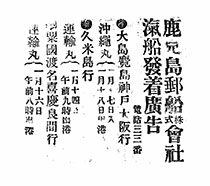 鹿児島郵船株式会社
滊船發着廣告
電話三三番
大島鹿島神戸大阪行
沖縄丸 一月十七日入港 一月十八日出港
久米島行
運輸丸 一月十四日 午前九時出港
渡名喜慶良間行
運輸丸 一月十六日 午前八時出港